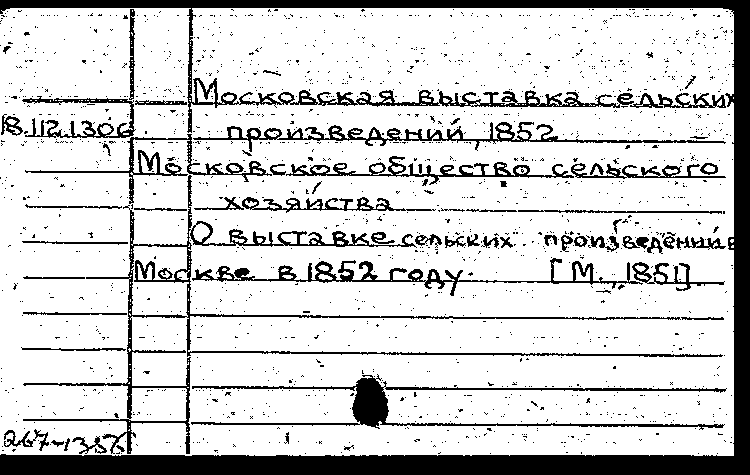 Московская выставка сельских
18.112.1306
произведений, 1852
Московское общество сельского
хозяйства
О выставке сельских произведений в
Москве в 1852 году. [М., 1851].
267-1356